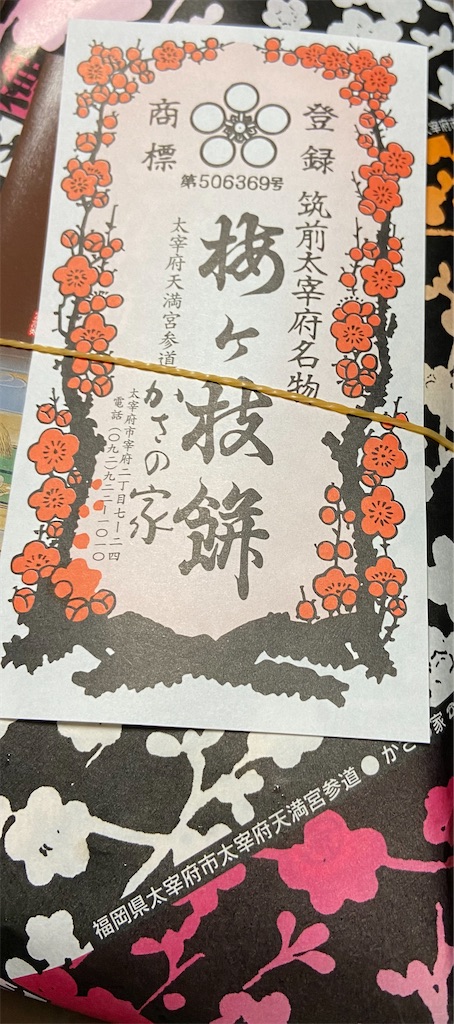 登録
商標
第506369号
筑前太宰府名物
梅ヶ枝餅
太宰府天満宮参道
かさの家
太宰府市宰府二丁目七ー二四
電話(〇九二)九二二ー一〇一〇
福岡県太宰府市太宰府天満宮参道●かさの家の